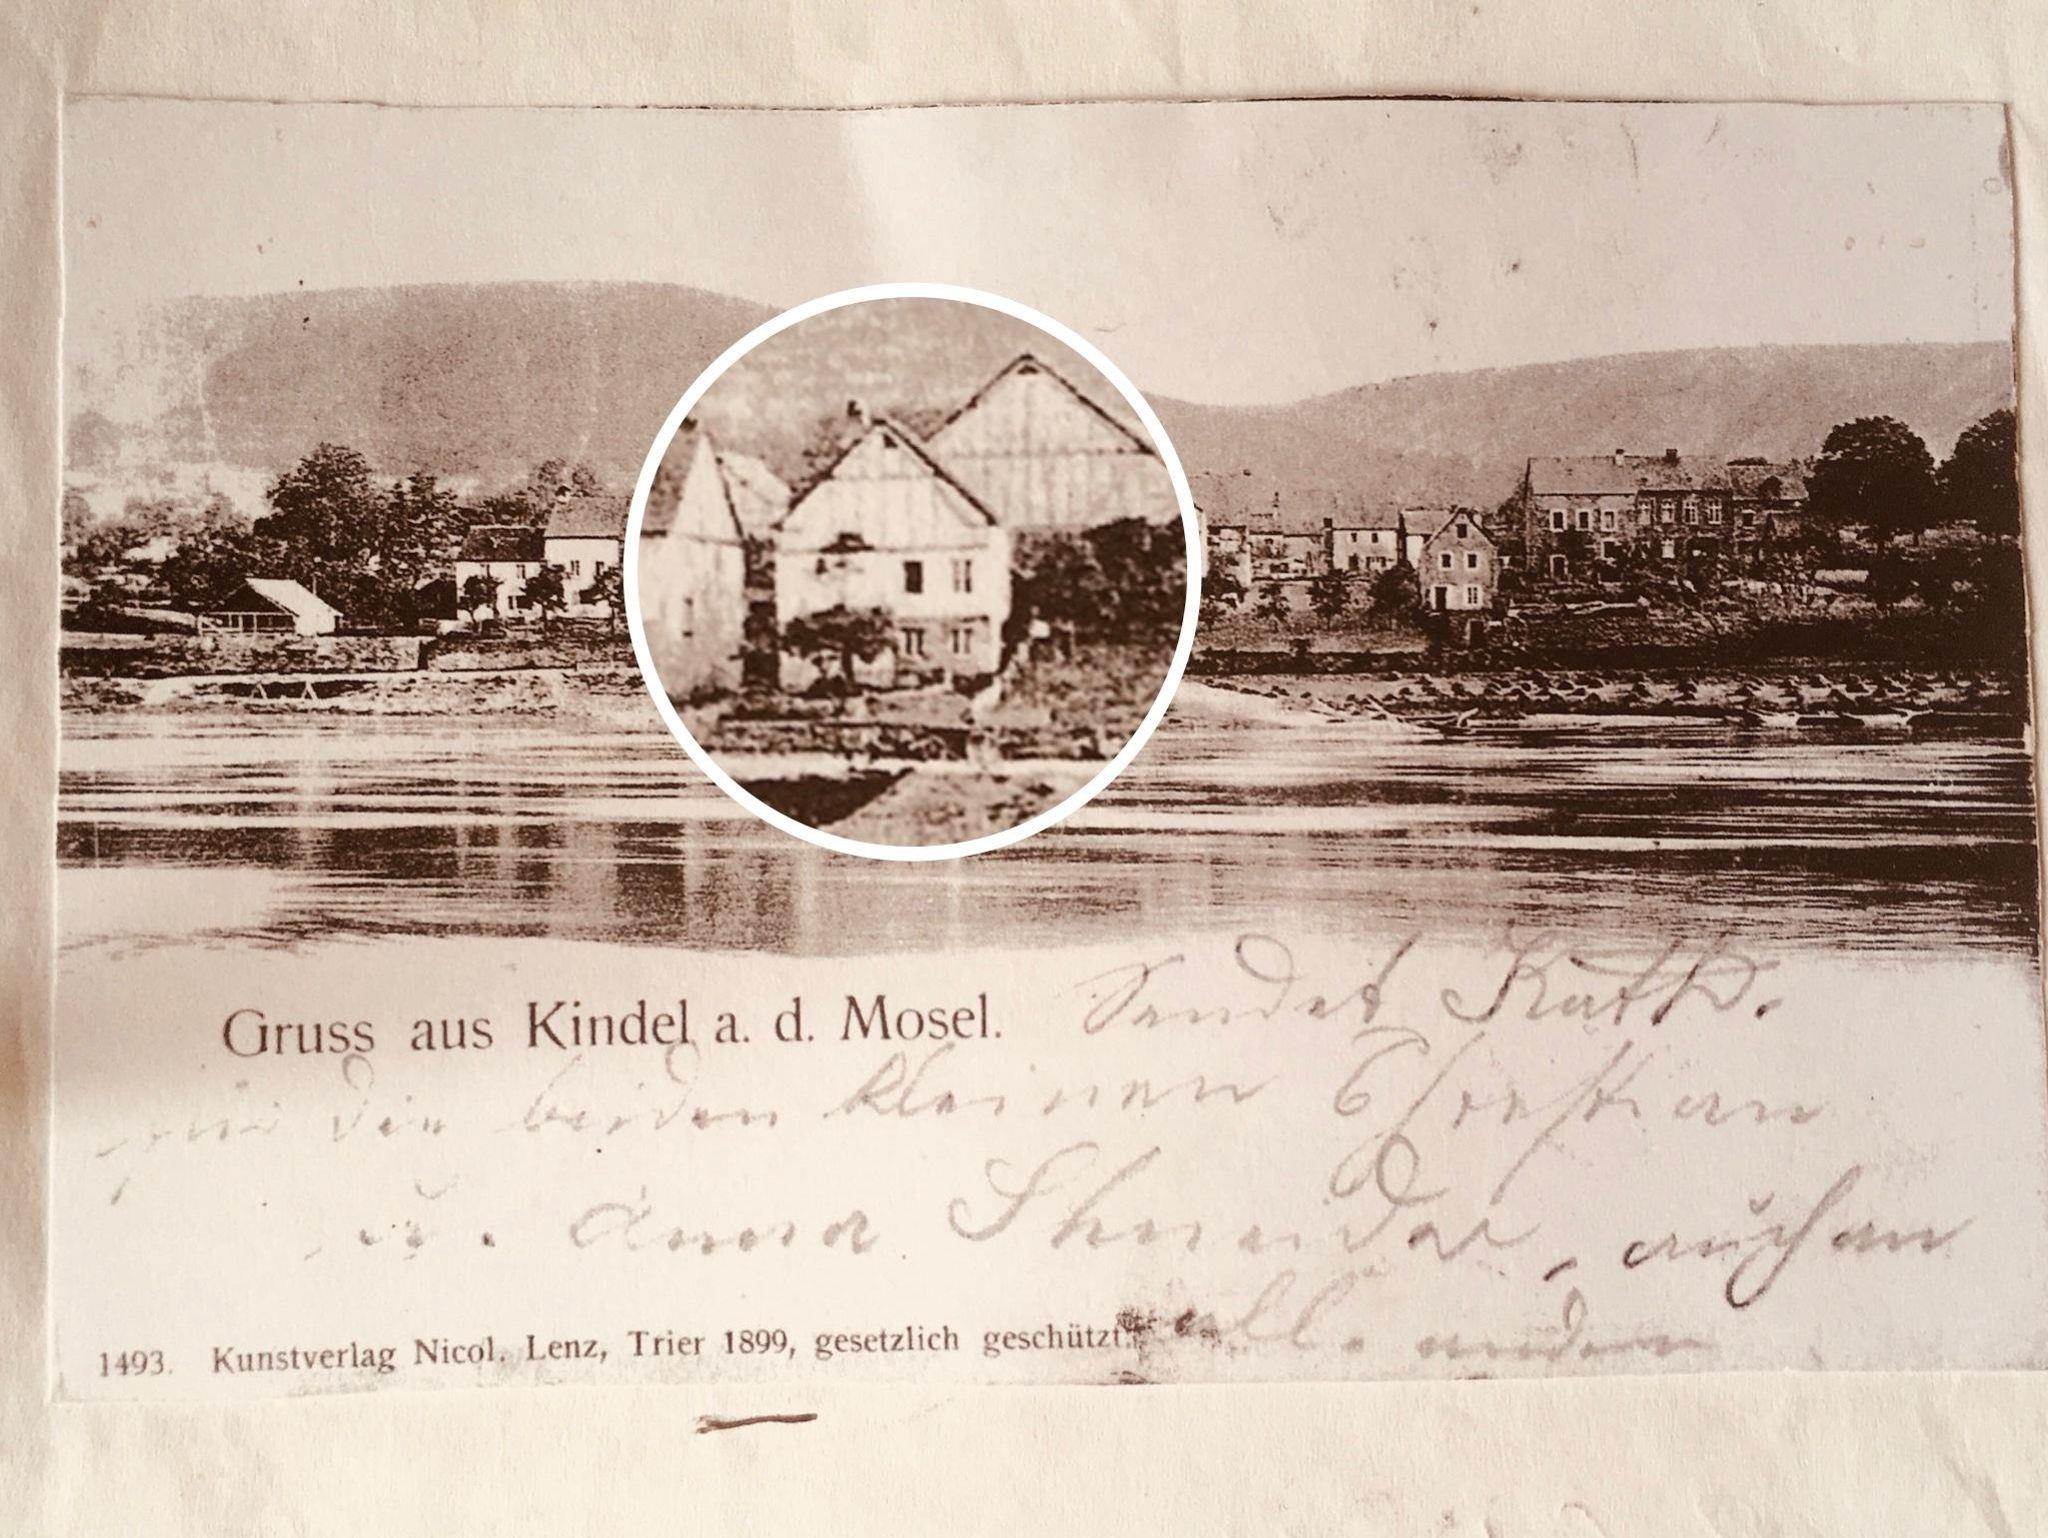 Gruss aus Kindel a. d. Mosel. Sendet Kath.
für die beiden kleinen Christian
u. Anna Schneider, auch an
all. andern
1493. Kunstverlag Nicol. Lenz, Trier 1899, gesetzlich geschützt.